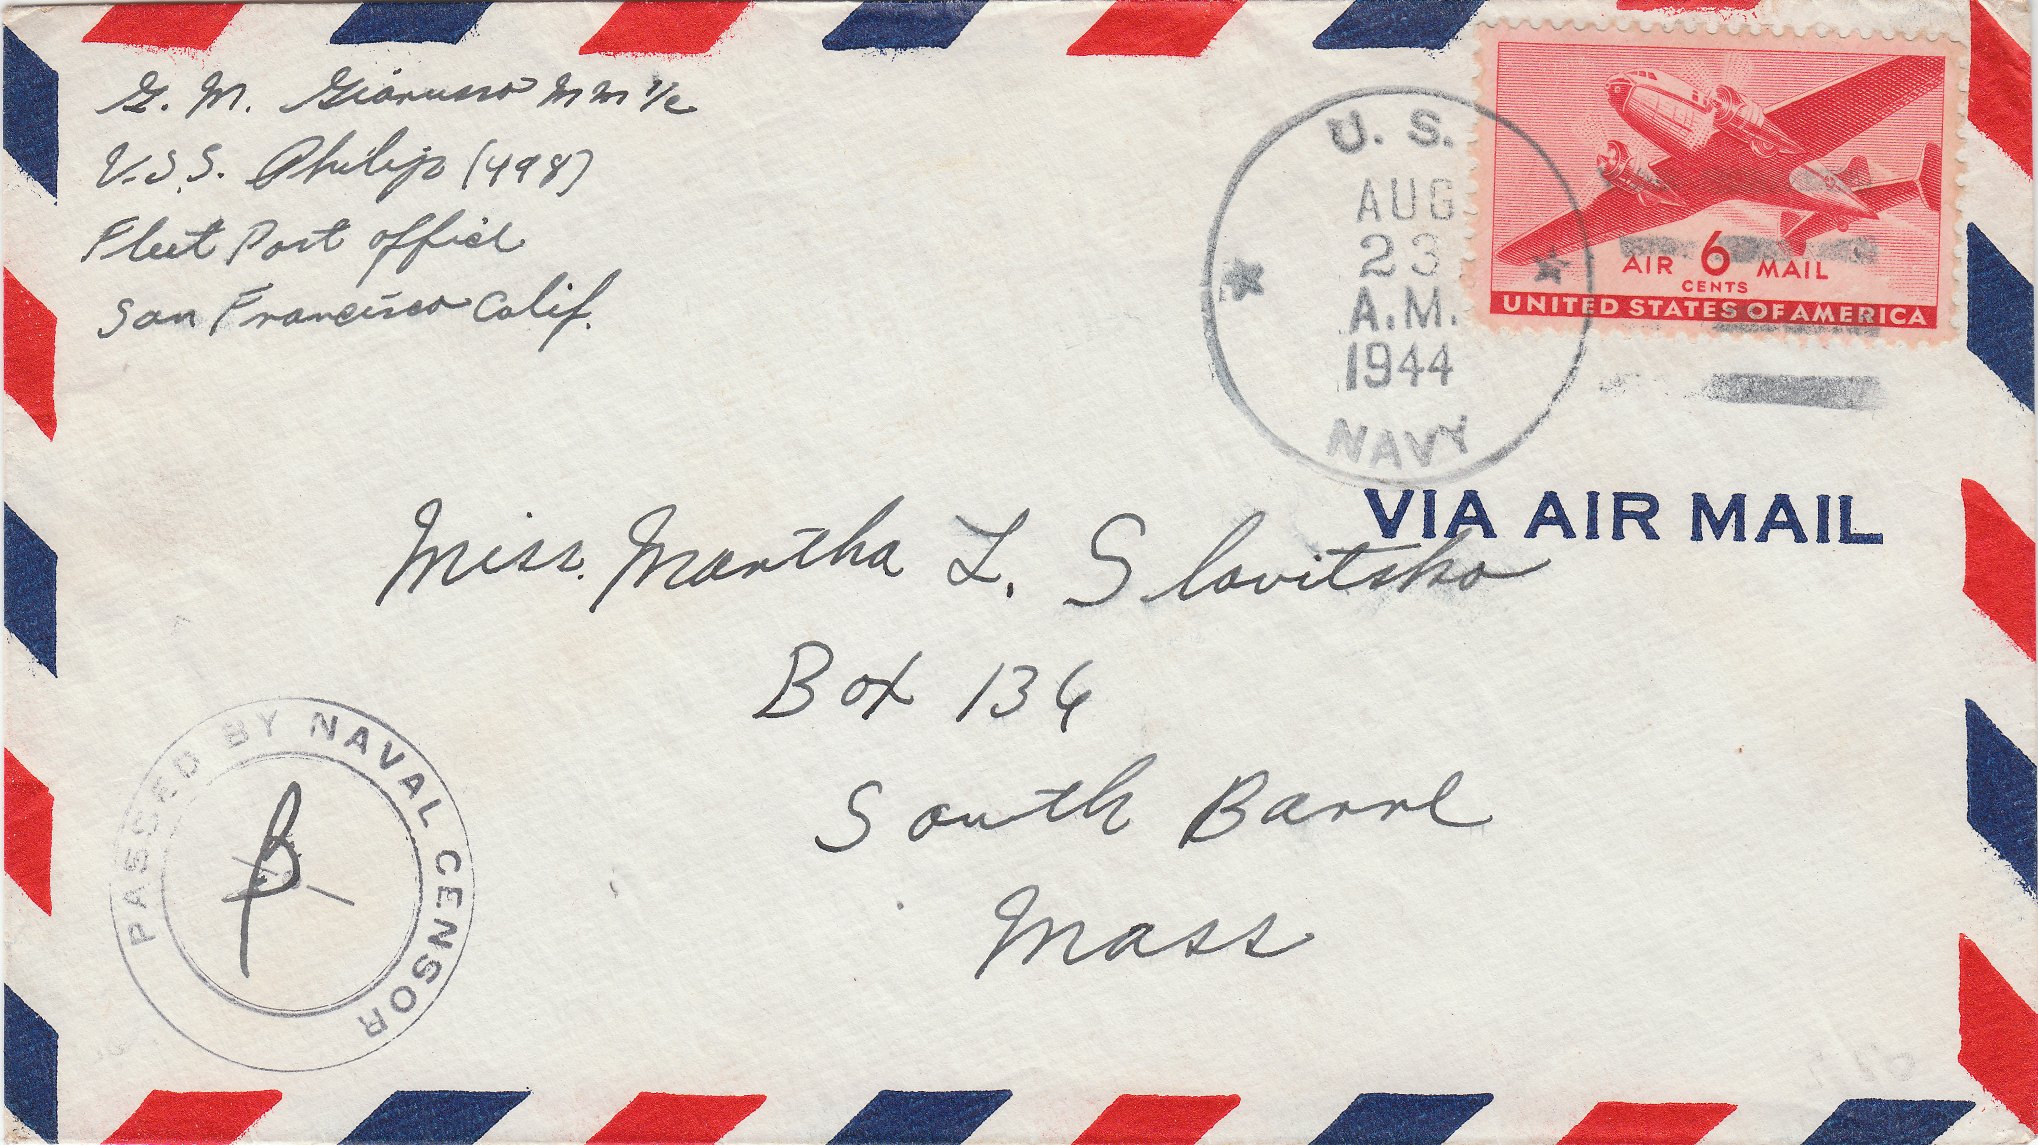 G. M. Giarusso MM 1/c
U.S.S. Philip (498)
Fleet Post Office
San Francisco Calif.
U. S.
AUG
23
A.M.
1944
NAVY
AIR 6 MAIL
CENTS
UNITED STATES OF AMERICA
VIA AIR MAIL
Miss. Martha L. Slovitsko
Box 136
South Barre
Mass
PASSED BY NAVAL CENSOR